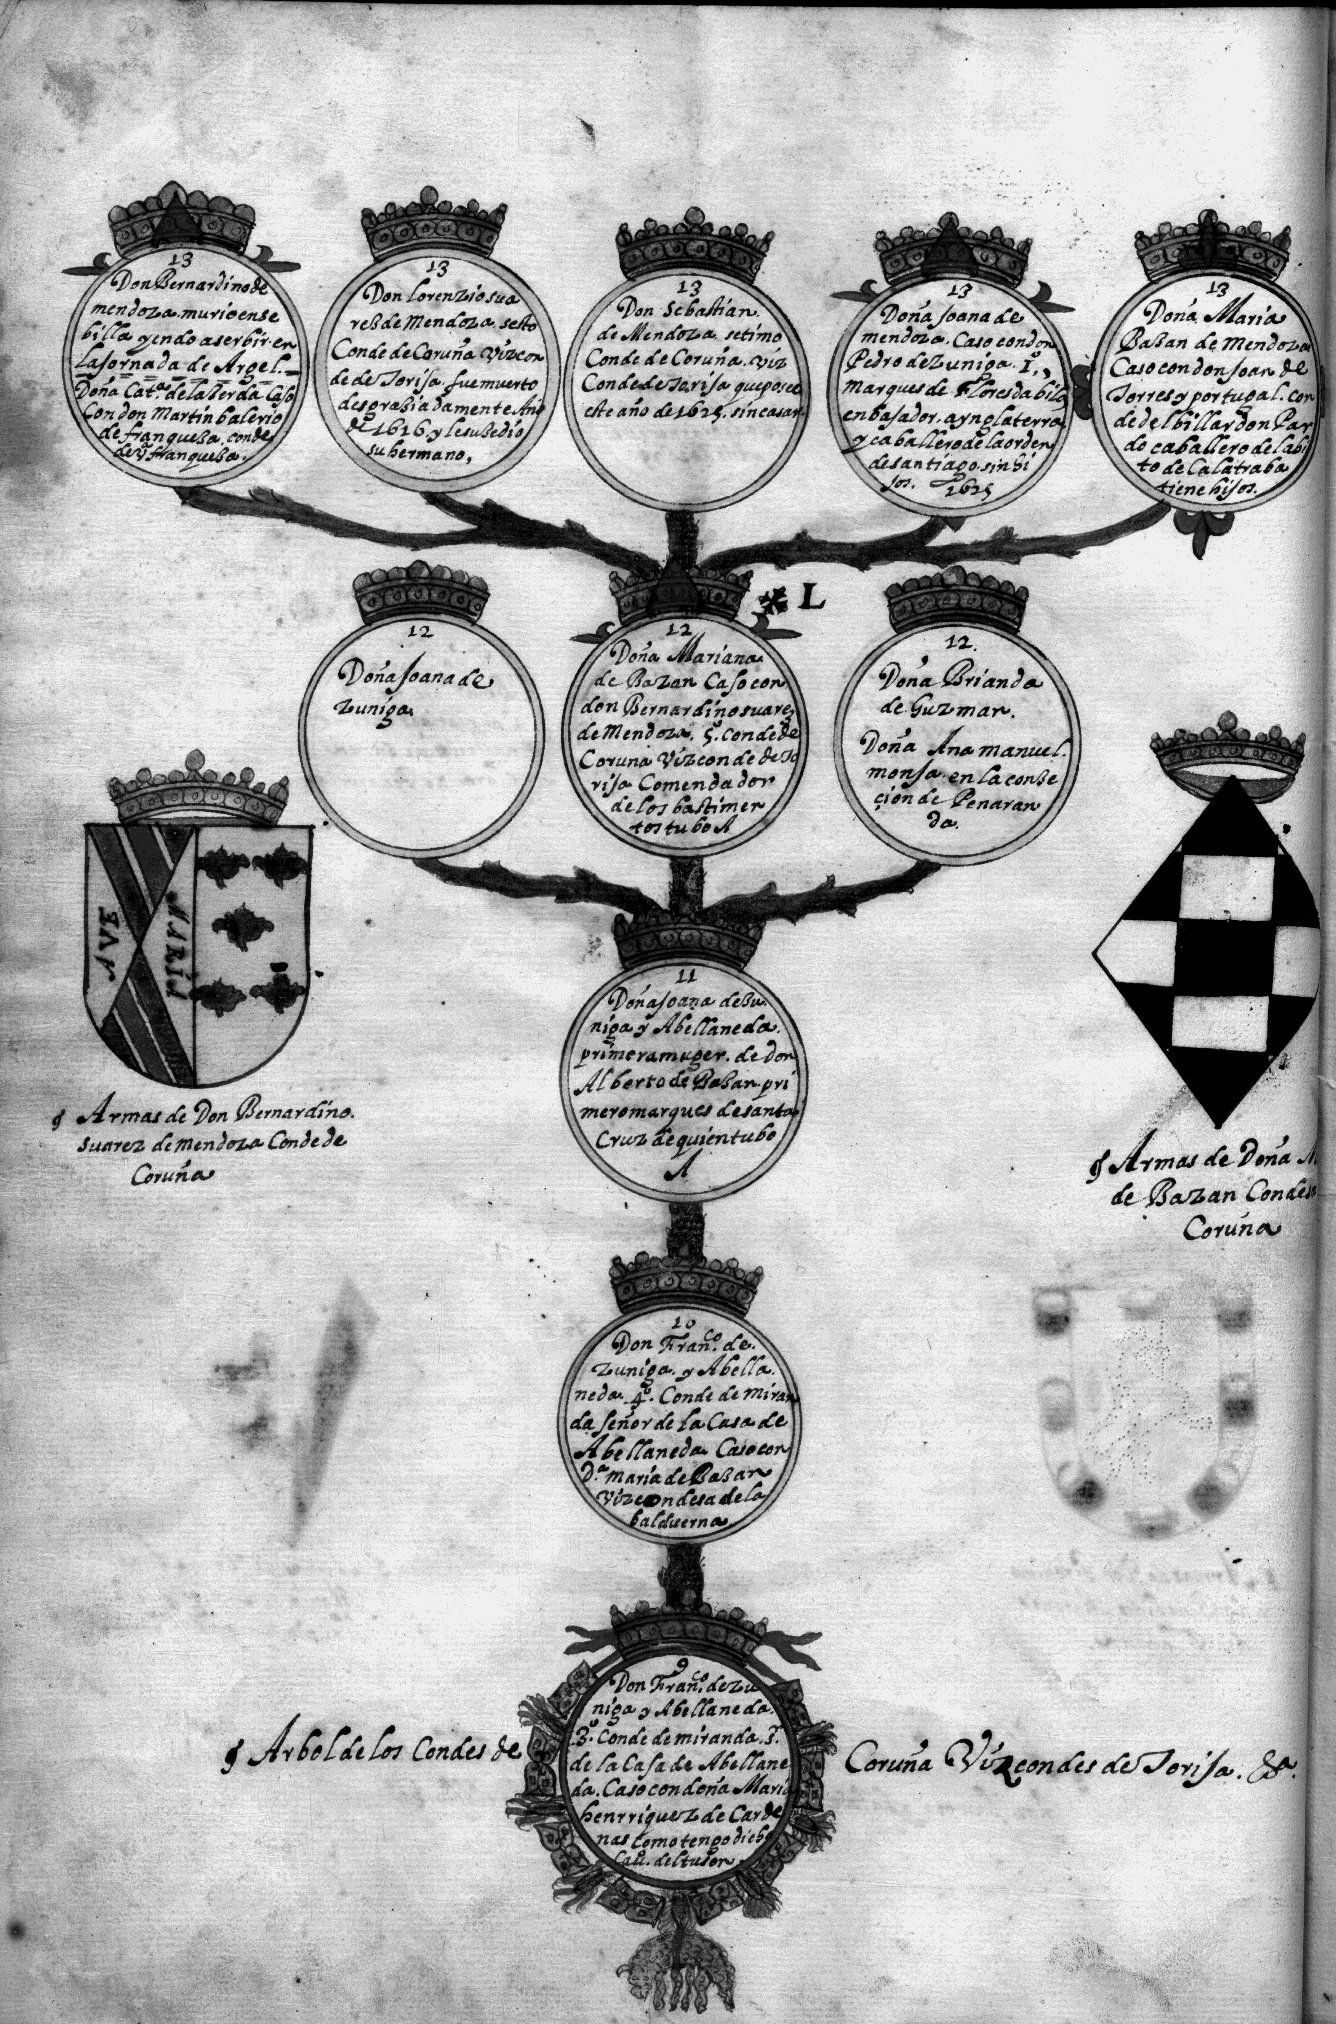 13
Don Bernardino de
mendoza. murio en se
billa yendo a serbir en
la Jornada de Argel.
Doña Cat.ª de la Serda Caso
Con don Martin balerio
de franqueza. conde
de v.ª franqueza.
13
Don Lorenzio sua
rez de Mendoza. sesto
Conde de Coruña Vizcon
de de Torija. fue muerto
desgraziadamente Año
de 1616. y le suzedio
su hermano,
13
Don Sebastian.
de Mendoza. setimo
Conde de Coruña. Viz
Conde de Torija que posee
este año de 1625. sin casar.
13
Doña Joana de
mendoza. Caso con don
Pedro de Zuniga. 1º,
marques de Flores dabila
enbajador. a ynglaterra.
y caballero de la orden
de santiago. sin hi
jos. 1625
13
Doña Maria
Bazan de Mendoza
Caso con don Joan de
Torres y portugal. con
de del billar don Par
do caballero del abi
to de Calatraba
tiene hijos.
12
Doña Joana de
Zuniga.
12
Doña Mariana.
de Bazan Caso con
don Bernardino suarez
de Mendoza. 5º. conde de
Coruna Vizconde de To
rija Comendador
de los bastimen
tos tubo A
L
12.
Doña Brianda
de Guzman.
Doña Ana manuel.
monja. en la conze
çion de Penaran
da.
AVE
MARIA
ꝯ Armas de Don Bernardino.
suarez de mendoza Conde de
Coruña
11
Doña Joana de zu
niga y Abellaneda.
primera muger. de don
Alberto de Bazan pri
mero marques de santa
Cruz de quien tubo
A
ꝯ Armas de Doña M
de Bazan Condesa
Coruña
10
Don Fran.co de.
Zuniga. y Abella.
neda. 4º. Conde de miran
da señor de la Casa de
Abellaneda. Caso con
D.ª maria de Bazan
Vizcondesa de la
balduerna.
9
Don Fran.co de zu
niga y Abellaneda.
3º. Conde de miranda. s.r
de la Casa de Abellane
da. Caso con doña Maria
henrriquez de Carde
nas como tengo dicho
Cau. del tuson.
ꝯ Arbol de los Condes de Coruña Vizcondes de Torija. &ª.